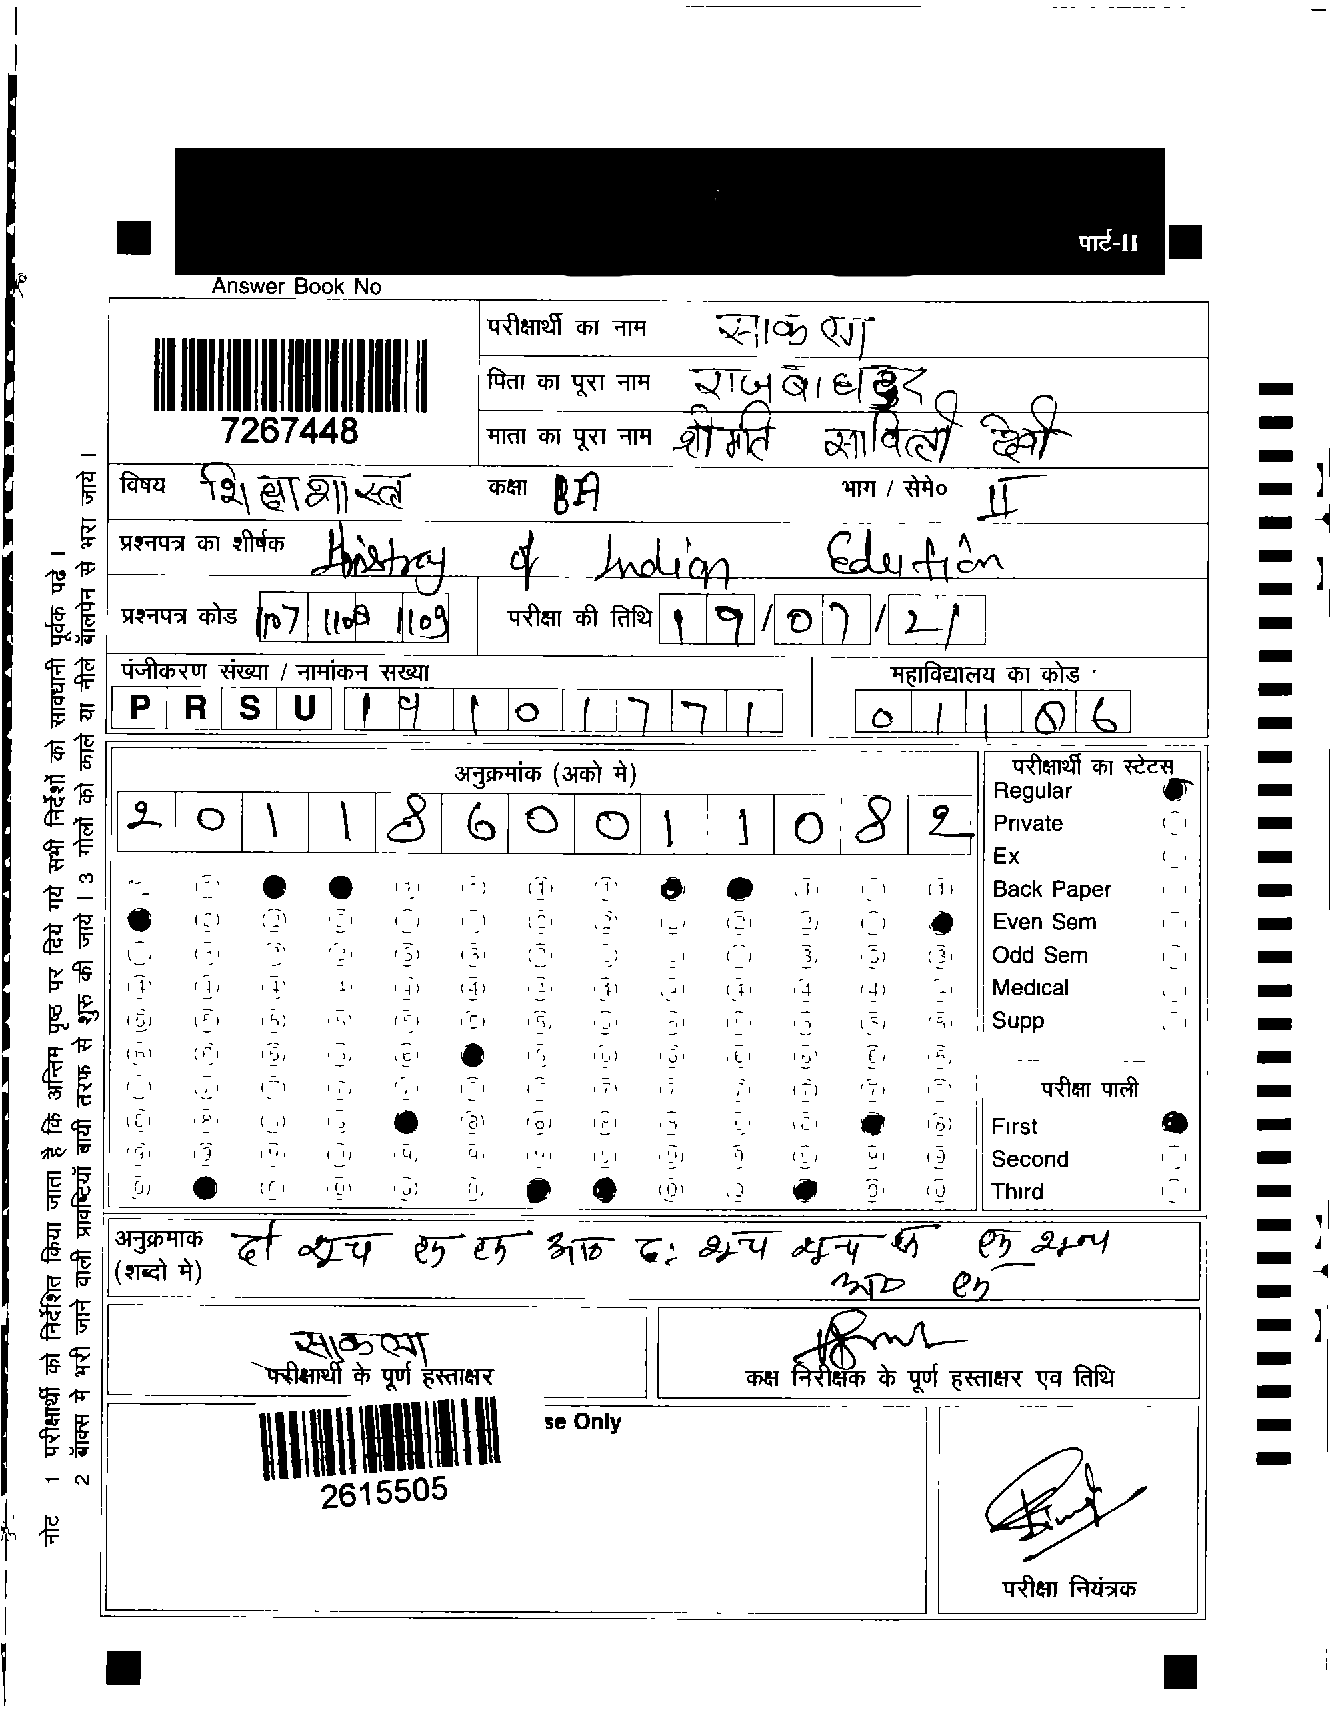 पार्ट-II
Answer Book No
7267448
परीक्षार्थी का नाम
पिता का पूरा नाम राजबाहादुर
माता का पूरा नाम श्रीमति सावित्री देवी
विषय शिक्षाशास्त्र कक्षा BA भाग / सेमे० II
प्रश्नपत्र का शीर्षक of Indian
प्रश्नपत्र कोड 107 1108 1109 परीक्षा की तिथि 19/07/21
पंजीकरण संख्या / नामांकन सख्या महाविद्यालय का कोड
PRSU 19101771 01106
अनुक्रमांक (अको मे)
2011860011082
परीक्षार्थी का स्टेटस
Regular
Private
Ex
Back Paper
Even Sem
Odd Sem
Medical
Supp
परीक्षा पाली
First
Second
Third
अनुक्रमाक दो शून्य एक एक आठ शून्य शून्य एक एक शून्य
(शब्दो मे) आठ
परीक्षार्थी के पूर्ण हस्ताक्षर
कक्ष निरीक्षक के पूर्ण हस्ताक्षर एव तिथि
se Only
2615505
परीक्षा नियंत्रक
नोट 1 परीक्षार्थी को निर्देशित किया जाता है कि अन्तिम पृष्ठ पर दिये गये सभी निर्देशों को सावधानी पूर्वक पढें।
2 बॉक्स मे भरी जाने वाली प्रविष्टियाँ बायी तरफ से शुरु की जाये। 3 गोलों को काले या नीले बॉलपेन से भरा जाये।